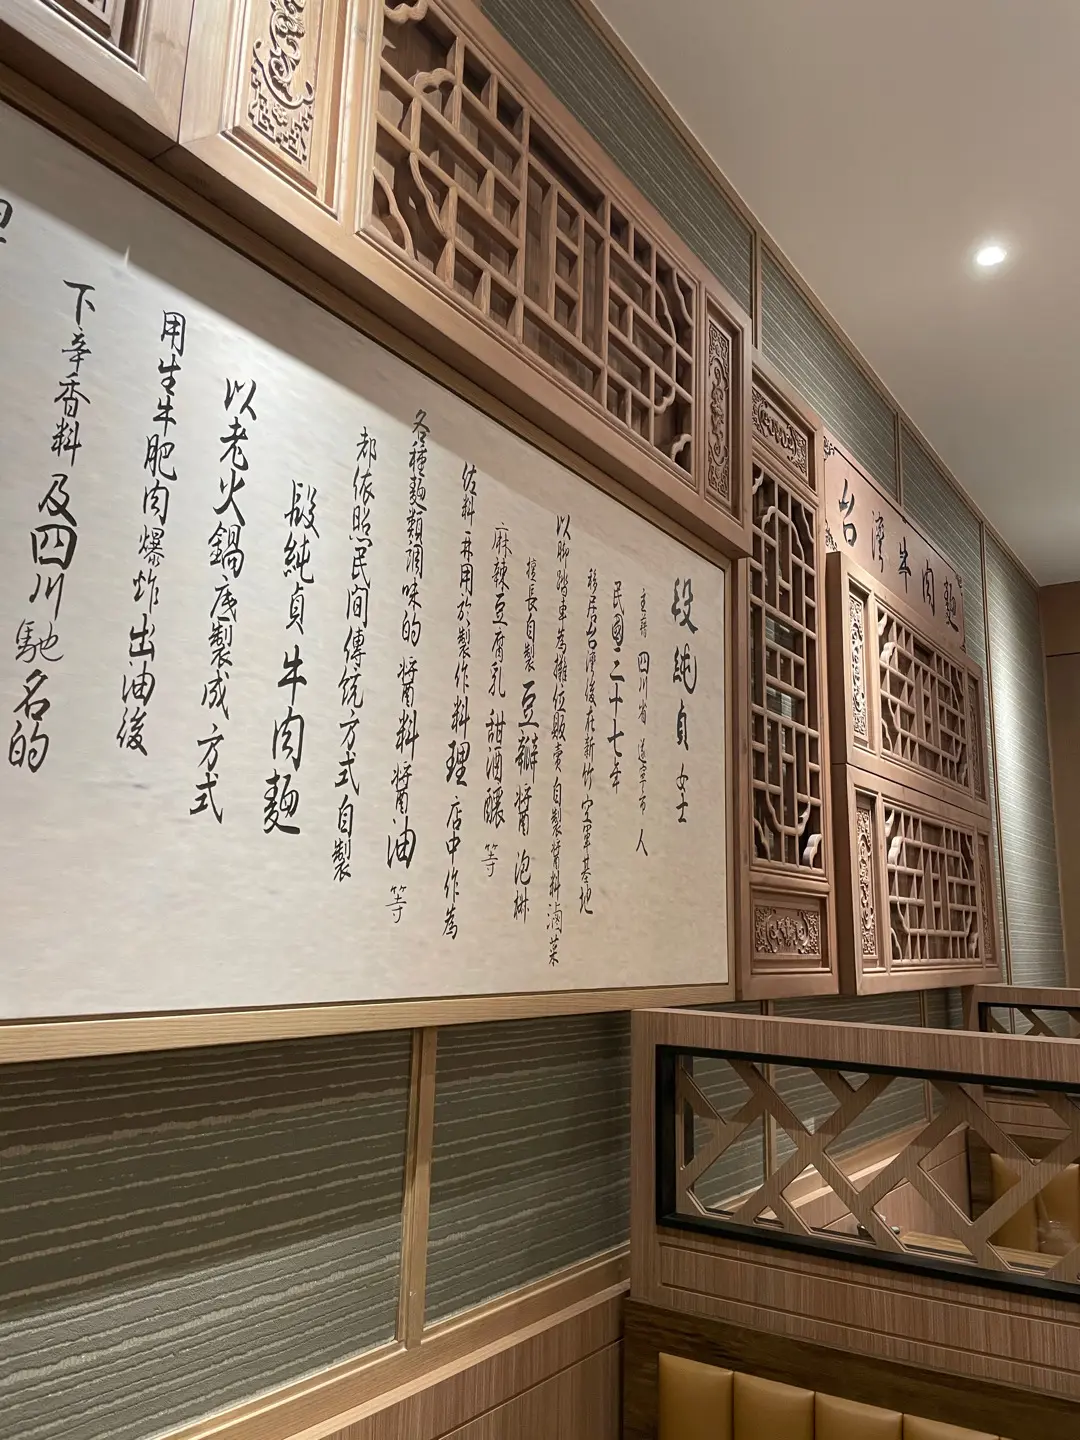 段純貞 女士
主蒋 四川省 遂寧市 人
民國三十七年
移居台灣後在新竹空軍基地
以脚踏車為攤位販賣自製醬料滷菜
擅長自製 豆瓣醬 泡椒
麻辣豆腐乳 甜酒釀 等
佐料并用於製作料理 店中作為
各種麵類調味的 醬料 醬油 等
都依照民間傳統方式自製
段純貞 牛肉麵
以老火鍋底製成方式
用生牛肥肉爆炸出油後
下辛香料及四川馳名的
台灣牛肉麵